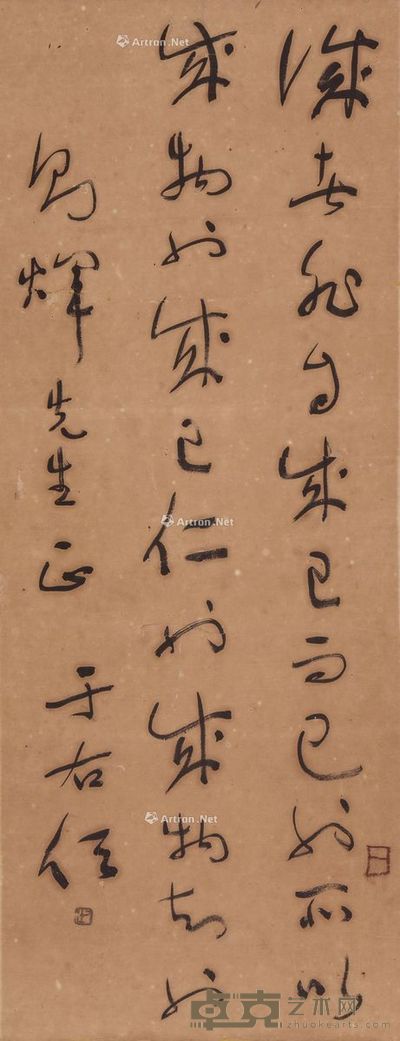 誠者非自成己而已也所以
成物也成己仁也成物知也
煇先生正 于右任
Artron.Net
Artron.Net
Artron.Net
Artron.Net
卓克艺术网
www.zhuokearts.com